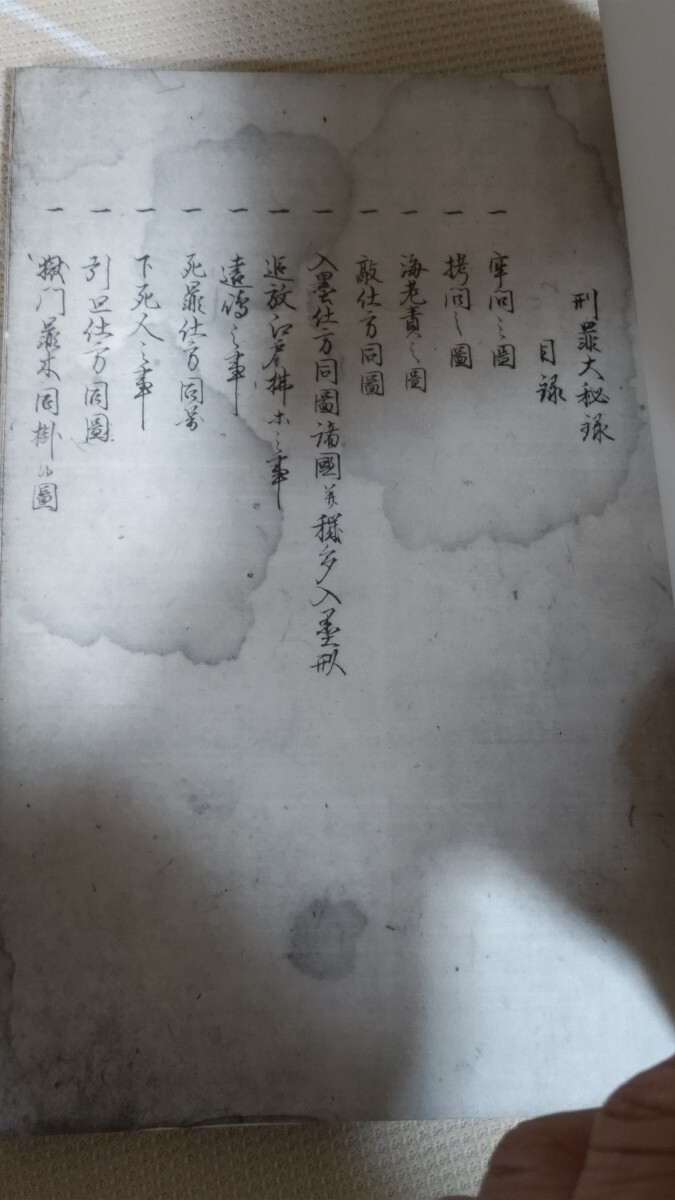 刑罪大秘録
目録
一 牢問之圖
一 拷問之圖
一 海老責之圖
一 敲仕方同圖
一 入墨仕方同圖諸國并穢多入墨形
一 追放江戸拂ホ之事
一 遠嶋之事
一 死罪仕方同
一 下死人之事
一 引廻仕方同圖
一 獄門罪木同掛ケ圖